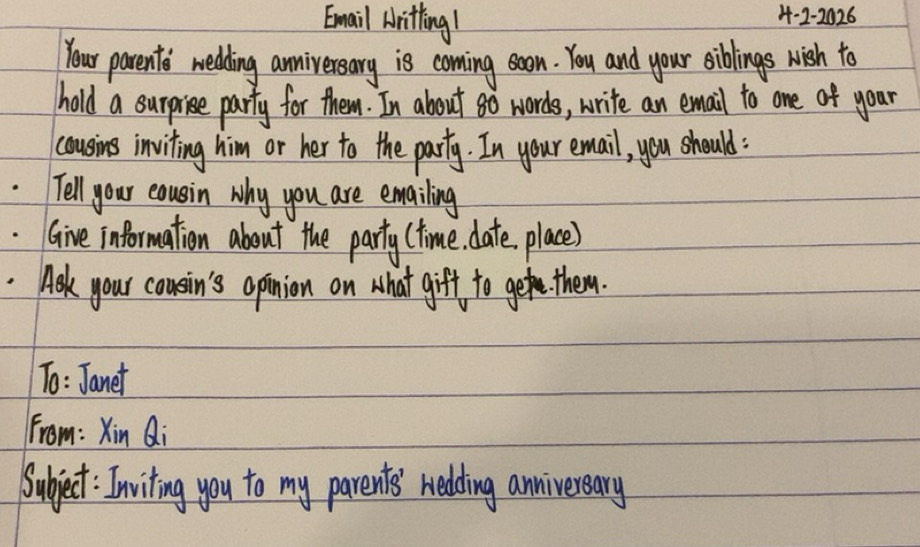 Email Writting! 4-2-2026
Your parents' wedding anniversary is coming soon. You and your siblings wish to
hold a surprise party for them. In about 80 words, write an email to one of your
cousins inviting him or her to the party. In your email, you should:
• Tell your cousin why you are emailing
• Give information about the party (time, date, place)
• Ask your cousin's opinion on what gift to get them.
To: Janet
From: Xin Qi
Subject: Inviting you to my parents' wedding anniversary